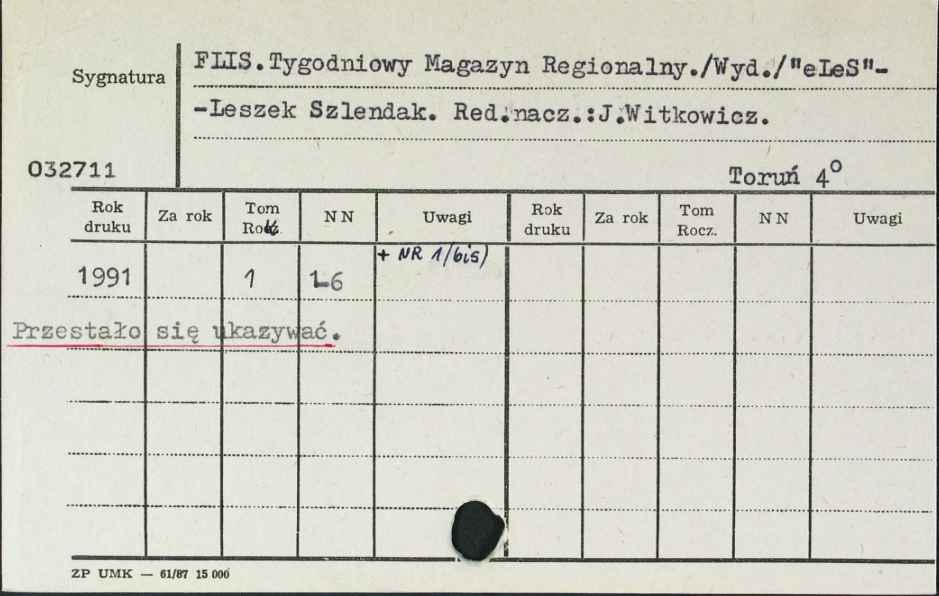 FLIS.Tygodniowy Magazyn Regionalny./Wyd./"eLeS"-
Sygnatura
-Leszek Szlendak. Red.nacz.:J.Witkowicz.
032711
Toruń 4°
Rok druku Za rok Tom Rocz. N N Uwagi Rok druku Za rok Tom Rocz. N N Uwagi
+ NR 1/bis)
1991 1 1-6
Przestało się ukazywać.
ZP UMK — 61/87 15 000